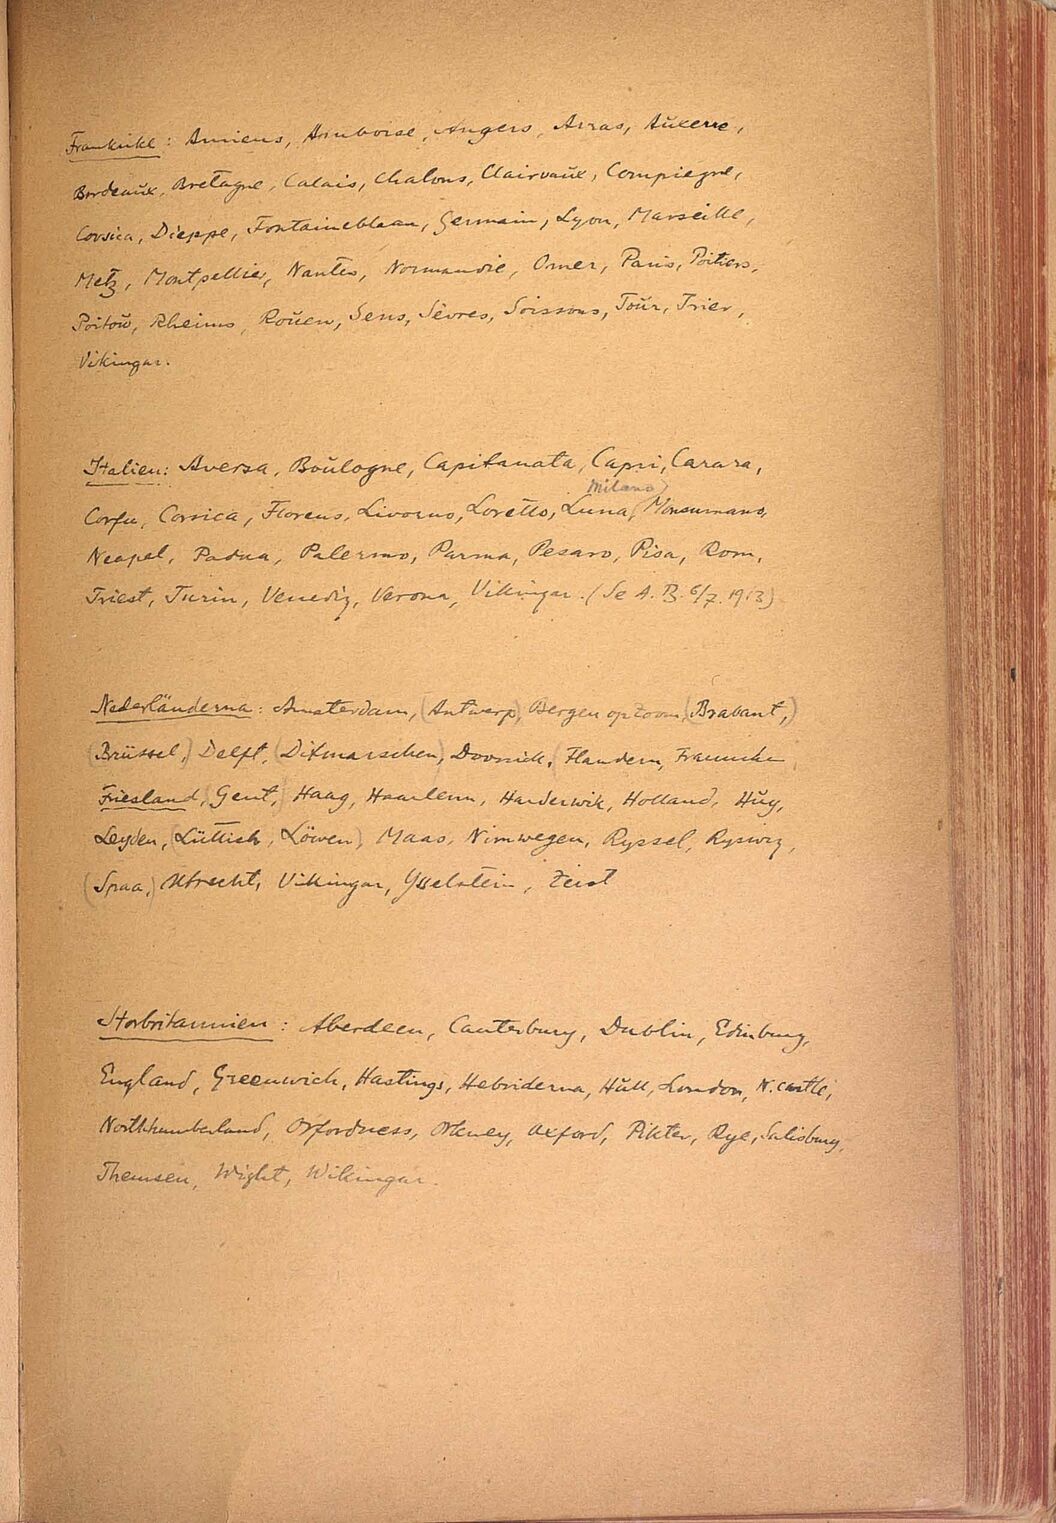 Frankrike: Amiens, Amboise, Angers, Arras, Auxerre,
Bordeaux, Bretagne, Calais, Chalons, Clairvaux, Compiegne,
Corsica, Dieppe, Fontainebleau, Germain, Lyon, Marseille,
Metz, Montpellier, Nantes, Normandie, Omer, Paris, Poitiers,
Poitou, Rheims, Rouen, Sens, Sèvres, Soissons, Tour, Trier,
Vikingar.
Italien: Aversa, Boulogne, Capitanata, Capri, Carara,
Milano
Corfu, Corsica, Florens, Livorno, Loretto, Luna, Monsumano,
Neapel, Padua, Palermo, Parma, Pesaro, Pisa, Rom,
Triest, Turin, Venedig, Verona, Vikingar. (Se A. B. 6/7. 1913)
Nederländerna: Amsterdam, (Antwerp), Bergen op Zoom, (Brabant,)
(Brüssel,) Delft, (Ditmarschen), Doornick, (Flandern,
Friesland, (Gent,) Haag, Haarlem, Harderwik, Holland, Huy,
Leyden, (Lüttich, Löwen), Maas, Nimwegen, Ryssel, Ryswig,
(Spaa,) Utrecht, Vikingar, Ysselstein, Zeist
Storbritannien: Aberdeen, Canterbury, Dublin, Edinburg,
England, Greenwich, Hastings, Hebriderna, Hull, London, N.castle,
Northhumberland, Orfordness, Orkney, Oxford, Pikter, Rye, Salisbury,
Themsen, Wight, Wikingar.